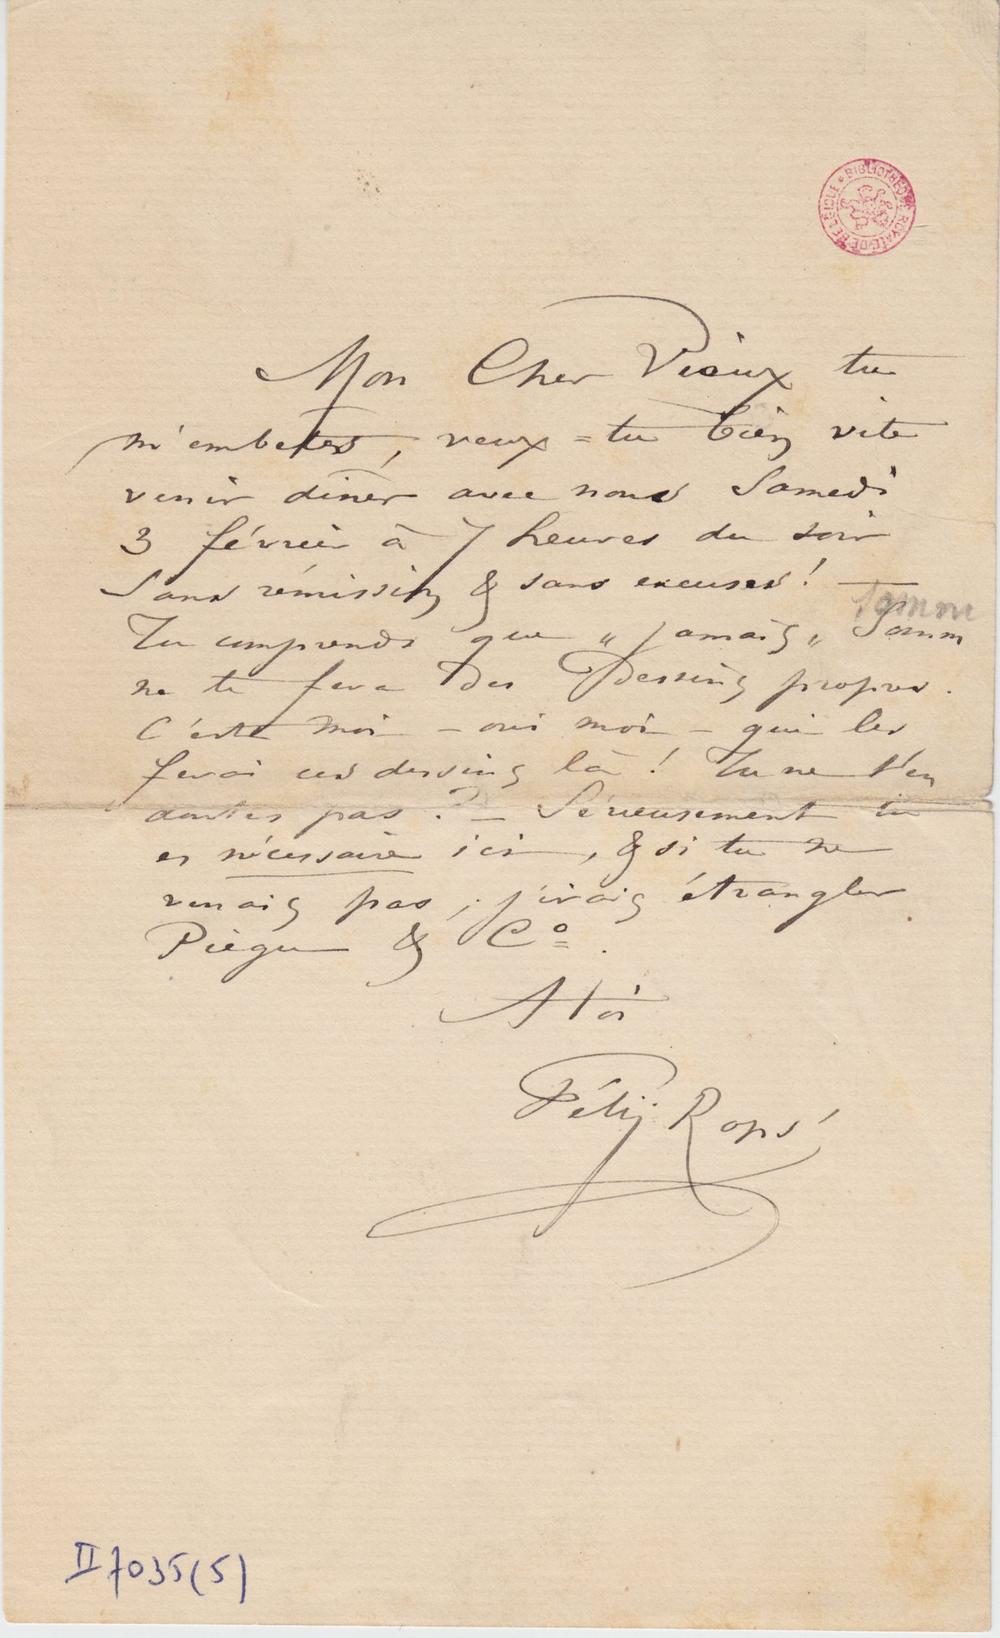 BIBLIOTHÈQUE ROYALE DE BELGIQUE
Mon Cher Vieux tu
m'embetes, veux=tu bien vite
venir dîner avec nous Samedi
3 février à 7 heures du soir
Sans rémission & sans excuses!
Tamm
Tu comprends que „jamais„ Somm
ne te fera Des Dessins propres.
C'est moi – oui moi – qui les
ferai ces dessins là! Tu ne t'en
doutes pas? – Sérieusement tu
es nécessaire ici, & si tu ne
venais pas, j'irais étrangler
Piègu & Co.
A toi
Félix Rops
II 7035(5)